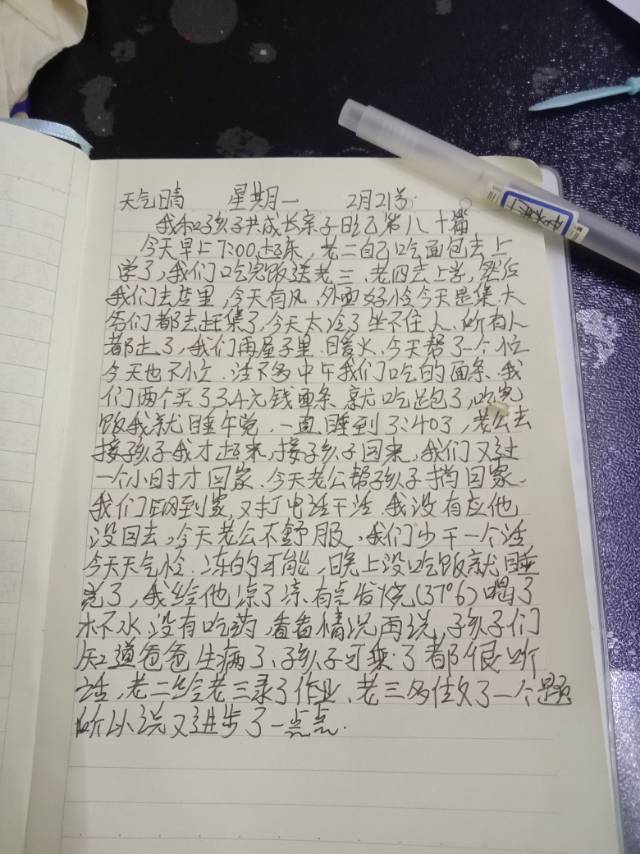 天气晴 星期一 2月21号
我和孩子共成长亲子日记第八十篇
今天早上7:00起床,老二自己吃面包去上
学了,我们吃完饭送老三、老四去上学,然后
我们去店里,今天有风,外面好冷今天是集,大
爷们都去赶集了,今天太冷了坐不住人,所有人
都走了,我们再屋子里暖火,今天帮了一个忙
今天也不忙,活不多中午我们吃的面条,我
们两个买了3.4元钱面条就吃饱了,吃完
饭我就睡午觉,一直睡到3:40了,老公去
接孩子我才起来,接孩子回来,我们又过
一个小时才回家,今天老公帮孩子捎回家
我们刚到家,又打电话干活,我没有应他
没回去,今天老公不舒服,我们少干一个活
今天天气冷,冻的可能,晚上没吃饭就睡
觉了,我给他凉了凉,有点发烧(37°6)喝了
杯水,没有吃药,看看情况再说,孩子们
知道爸爸生病了,孩子可乘了都很听
话,老二给老三录了作业,老三多住校了一个题
听小说又进步了一点点.